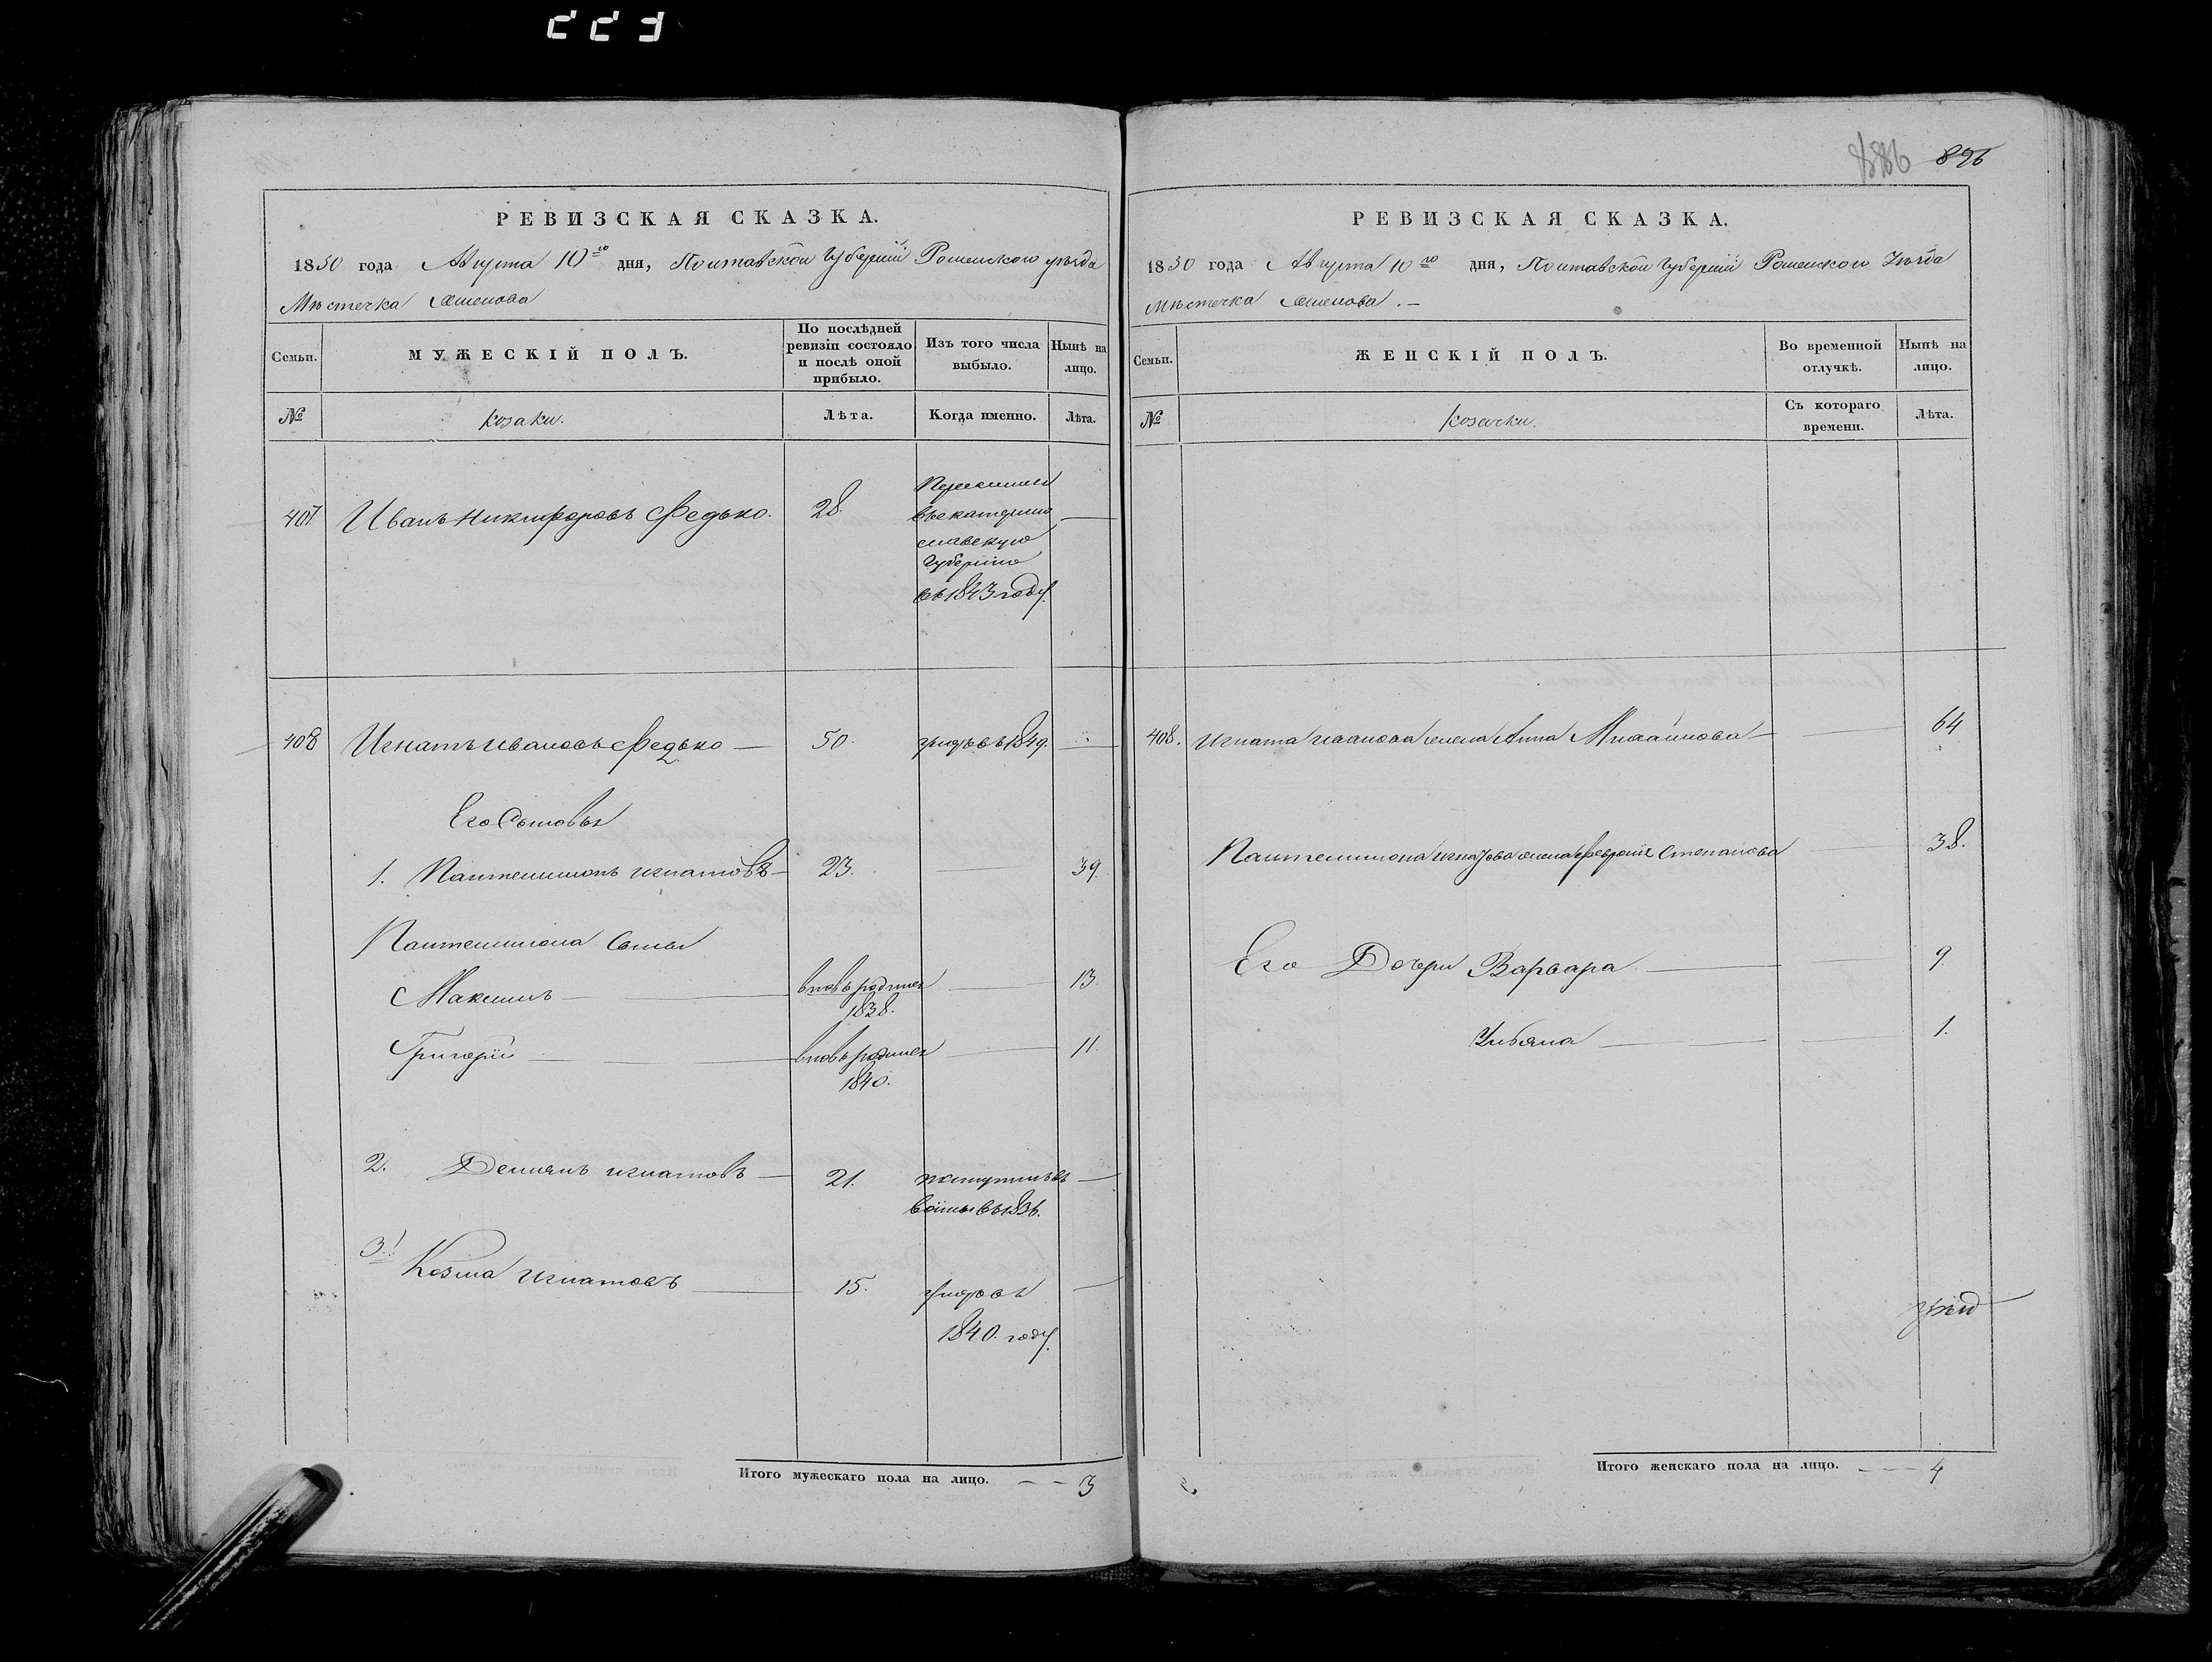 896
РЕВИЗСКАЯ СКАЗКА.
1850 года Августа 10го дня, Полтавской Губернiи Роменского уѣзда
Мѣстечка
Семьи.
МУЖЕСКІЙ ПОЛЪ.
По послѣдней ревизіи состояло и послѣ оной прибыло.
Изъ того числа выбыло.
Нынѣ на лицо.
№
козаки.
Лѣта.
Когда именно.
Лѣта.
407 Иванъ Никифоровъ Федько. 28. —
Переселился
въ Екатерино
славскую
Губернiю
въ 1843 году.
408 Игнатъ Ивановъ Федько — 50. умеръ въ 1849. —
Его Сыновья
1. Пантелимонъ Игнатовъ — 23. — 39.
Пантелимона Сыны
Максимъ — вновь родился — 13.
1838.
Григорiй — вновь родился — 11.
1840.
2. Демянъ Игнатовъ — 21. поступилъ въ —
1836.
3. Козма Игнатовъ — 15. умеръ въ —
1840. году.
Итого мужескаго пола на лицо. — — 3
РЕВИЗСКАЯ СКАЗКА.
1850 года Августа 10го дня, Полтавской Губернiи Роменского Уѣзда
Мѣстечка
Семьи.
ЖЕНСКІЙ ПОЛЪ.
Во временной отлучкѣ.
Нынѣ на лицо.
№
козачки.
Съ котораго времени.
Лѣта.
408. Игната Иванова жена Анна Михайлова — — 64
Пантелимона Игнатова жена Степанова — 38.
Его Дочери Варвара — — 9.
Ульяна — — 1.
Итого женскаго пола на лицо. — — 4